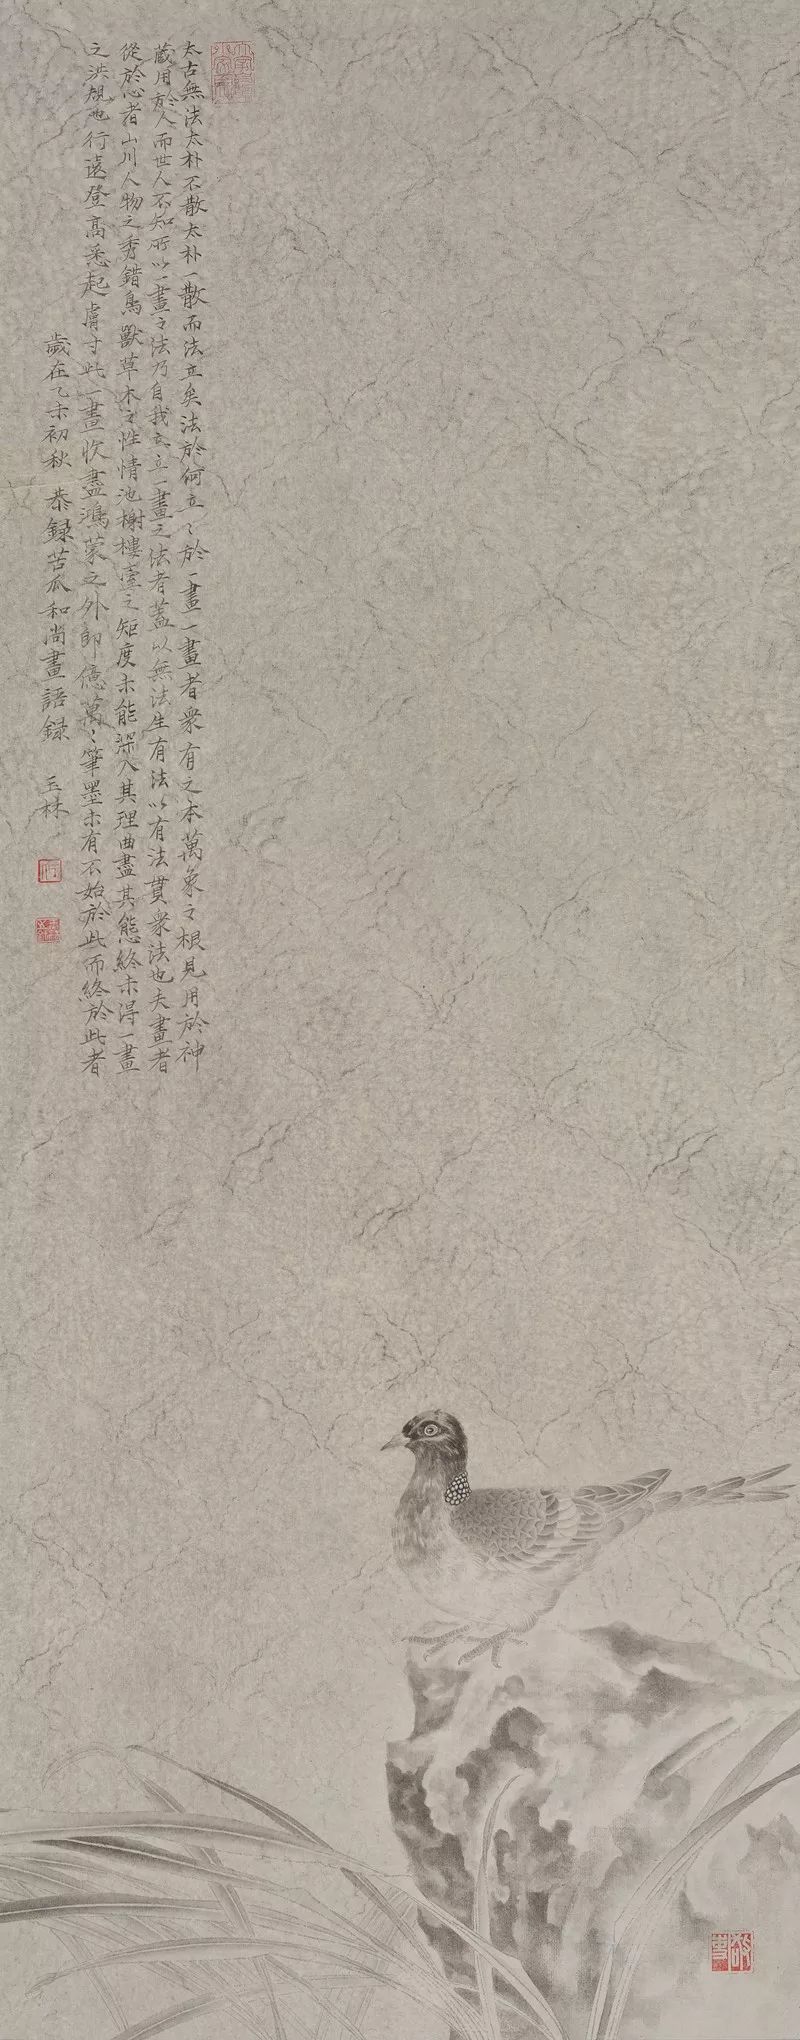 太古無法太朴不散太朴一散而法立矣法於何立〻於一畫一畫者衆有之本萬象之根見用於神
藏用於人而世人不知所以一畫之法乃自我立立一畫之法者蓋以無法生有法以有法貫衆法也夫畫者
從於心者山川人物之秀錯鳥獸草木之性情池榭樓臺之矩度未能深入其理曲盡其態終未得一畫
之洪規也行遠登高悉起膚寸此一畫收盡鴻蒙之外即億萬〻筆墨未有不始於此而終於此者
歲在乙未初秋 恭録苦瓜和尚畫語録 玉林